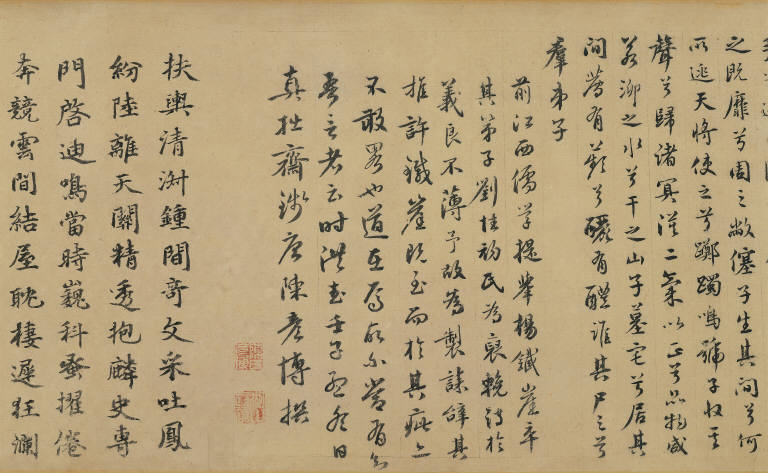 之既靡兮周之敝蹇子生其間兮何
所逃天將使之兮躑躅鳴號子收其
聲兮歸諸冥漠二氣以正兮品物咸
若泖之水兮干之山子墓宅兮居其
間有兮釃有醴誰其尸之兮
羣弟子
前江西儒學提舉楊鐵崖卒
其弟子劉桂初氏為裒輓詩於
義良不薄予故為製誄辭其
推許鐵崖既至而於其疵亦
不敢畧也道在焉嘗有
吾言者云時洪武壬子孟冬日
真拙齋錢唐陳彥博撰
扶輿清淑鍾間奇文采吐鳳
紛陸離天關精透抱麟史專
門啓迪鳴當時巍科蚤擢倦
奔競雲間結屋耽棲遲狂瀾